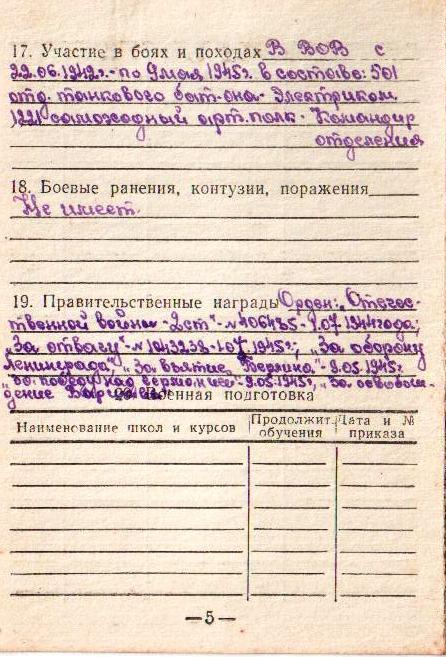 17. Участие в боях и походах В ВОВ с
22.06.1942г.- по 9 мая 1945г. в составе: 501
отд. танкового бат-она- Электриком.
1221 самоходный арт. полк- Командир
отделения
18. Боевые ранения, контузии, поражения
Не имеет.
19. Правительственные награды Орден: „Отечес-
твенной войны -2ст"-№406435- 1.07.1944года;
„За отвагу"-№1043238-1.07.1945г; „За оборону
Ленинграда", „За взятие Берлина"- 9.05.1945г.
„За победу над Германией- 9.05.1945г, „За освобож-
дение Варшавы"
20. Военная подготовка
Наименование школ и курсов
Продолжит. обучения
Дата и № приказа
—5—